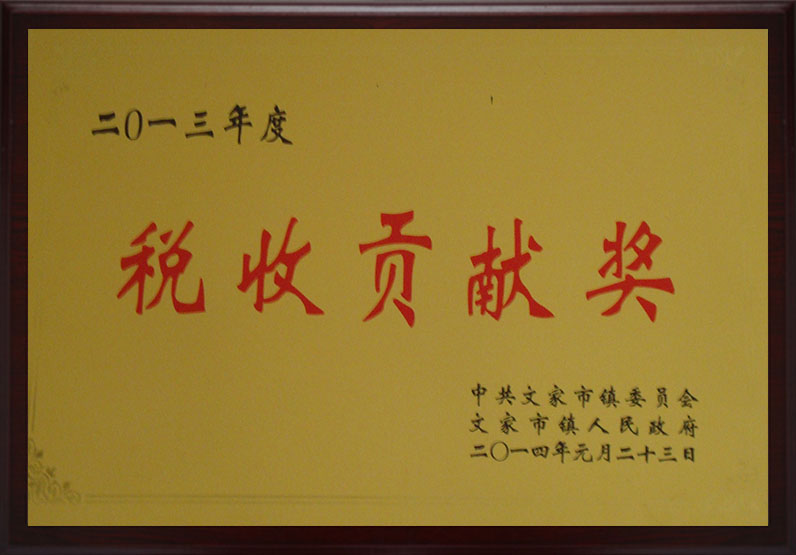 二〇一三年度
税收贡献奖
中共文家市镇委员会
文家市镇人民政府
二〇一四年元月二十三日